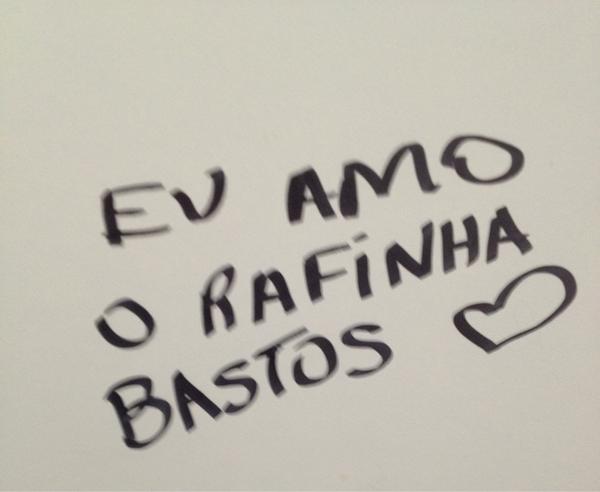 EU AMO
O RAFINHA
BASTOS